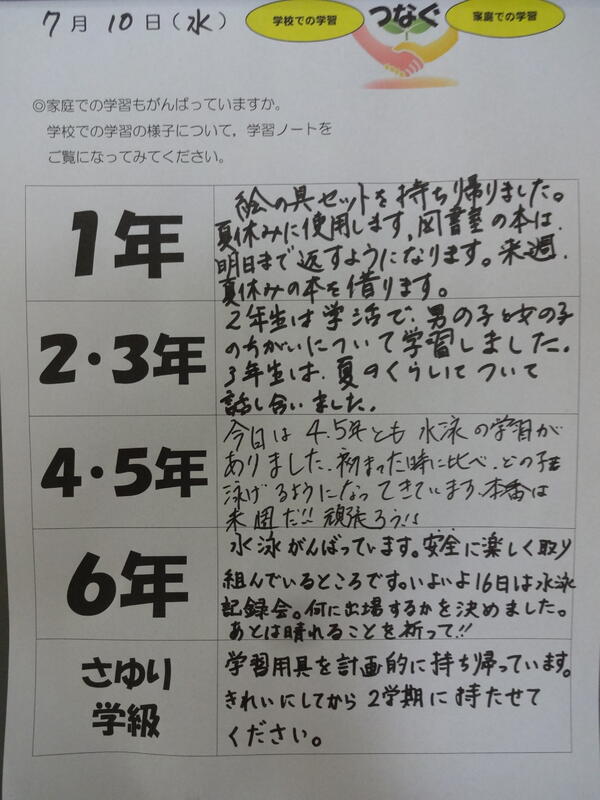 7月10日(水)
学校での学習
つなぐ
家庭での学習
◎家庭での学習もがんばっていますか。
学校での学習の様子について,学習ノートを
ご覧になってみてください。
1年
絵の具セットを持ち帰りました。
夏休みに使用します。図書室の本は、
明日まで返すようになります。来週、
夏休みの本を借ります。
2・3年
2年生は学活で、男の子と女の子
のちがいについて学習しました。
3年生は、夏のくらしについて
話し合いました。
4・5年
今日は4.5年とも水泳の学習が
ありました。初まった時に比べ、どの子も
泳げるようになってきています。本番は
来週だ!!頑張ろう!!
6年
水泳がんばっています。安全に楽しく取り
組んでいるところです。いよいよ16日は水泳
記録会。何に出場するかを決めました。
あとは晴れることを祈って!!
さゆり
学級
学習用具を計画的に持ち帰っています。
きれいにしてから2学期に持たせて
ください。